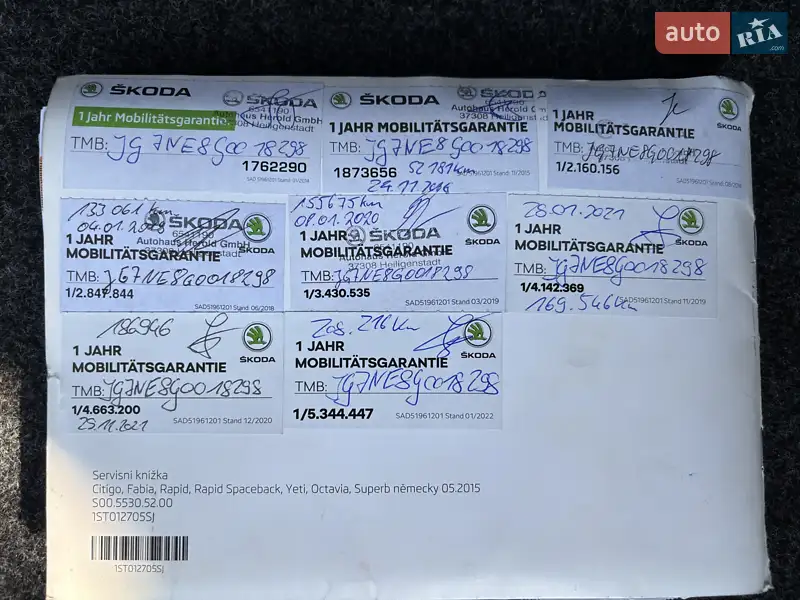 auto RIA.com
ŠKODA
ŠKODA
6541190
1 Jahr Mobilitätsgarantie.
Autohaus Herold GmbH
Heiligenstadt
TMB: JG7NE8G0018298
1762290
ŠKODA
ŠKODA
Autohaus Herold
37308 Heiligenstadt
1 JAHR
MOBILITÄTSGARANTIE
TMB: JG7NE8G0018298
1873656
Stand: 11/2015
1 JAHR
MOBILITÄTSGARANTIE
ŠKODA
TMB: JG7NE8G0018298
1/2.160.156
133 061 km
04.01.
ŠKODA
6541190
Autohaus Herold GmbH
37308 Heiligenstadt
1 JAHR
MOBILITÄTSGARANTIE
ŠKODA
TMB: JG7NE8G0018298
1/2.847.844
SAD51961201 Stand 06/2018
155675 km
08.01.2020
1 JAHR
ŠKODA
Autohaus Herold GmbH
37308 Heiligenstadt
MOBILITÄTSGARANTIE
ŠKODA
TMB: JG7NE8G0018298
1/3.430.535
SAD51961201 Stand 03/2019
28.01.2021
1 JAHR
MOBILITÄTSGARANTIE
ŠKODA
TMB: JG7NE8G0018298
1/4.142.369
SAD51961201 Stand 11/2019
169.546 km
186946
1 JAHR
MOBILITÄTSGARANTIE
ŠKODA
TMB: JG7NE8G0018298
1/4.663.200
SAD51961201 Stand 12/2020
29.11.2021
208.216 km
1 JAHR
MOBILITÄTSGARANTIE
ŠKODA
TMB: JG7NE8G0018298
1/5.344.447
SAD51961201 Stand 01/2022
Servisni knižka
Citigo, Fabia, Rapid, Rapid Spaceback, Yeti, Octavia, Superb německy 05.2015
S00.5530.52.00
1ST012705SJ
1ST012705SJ